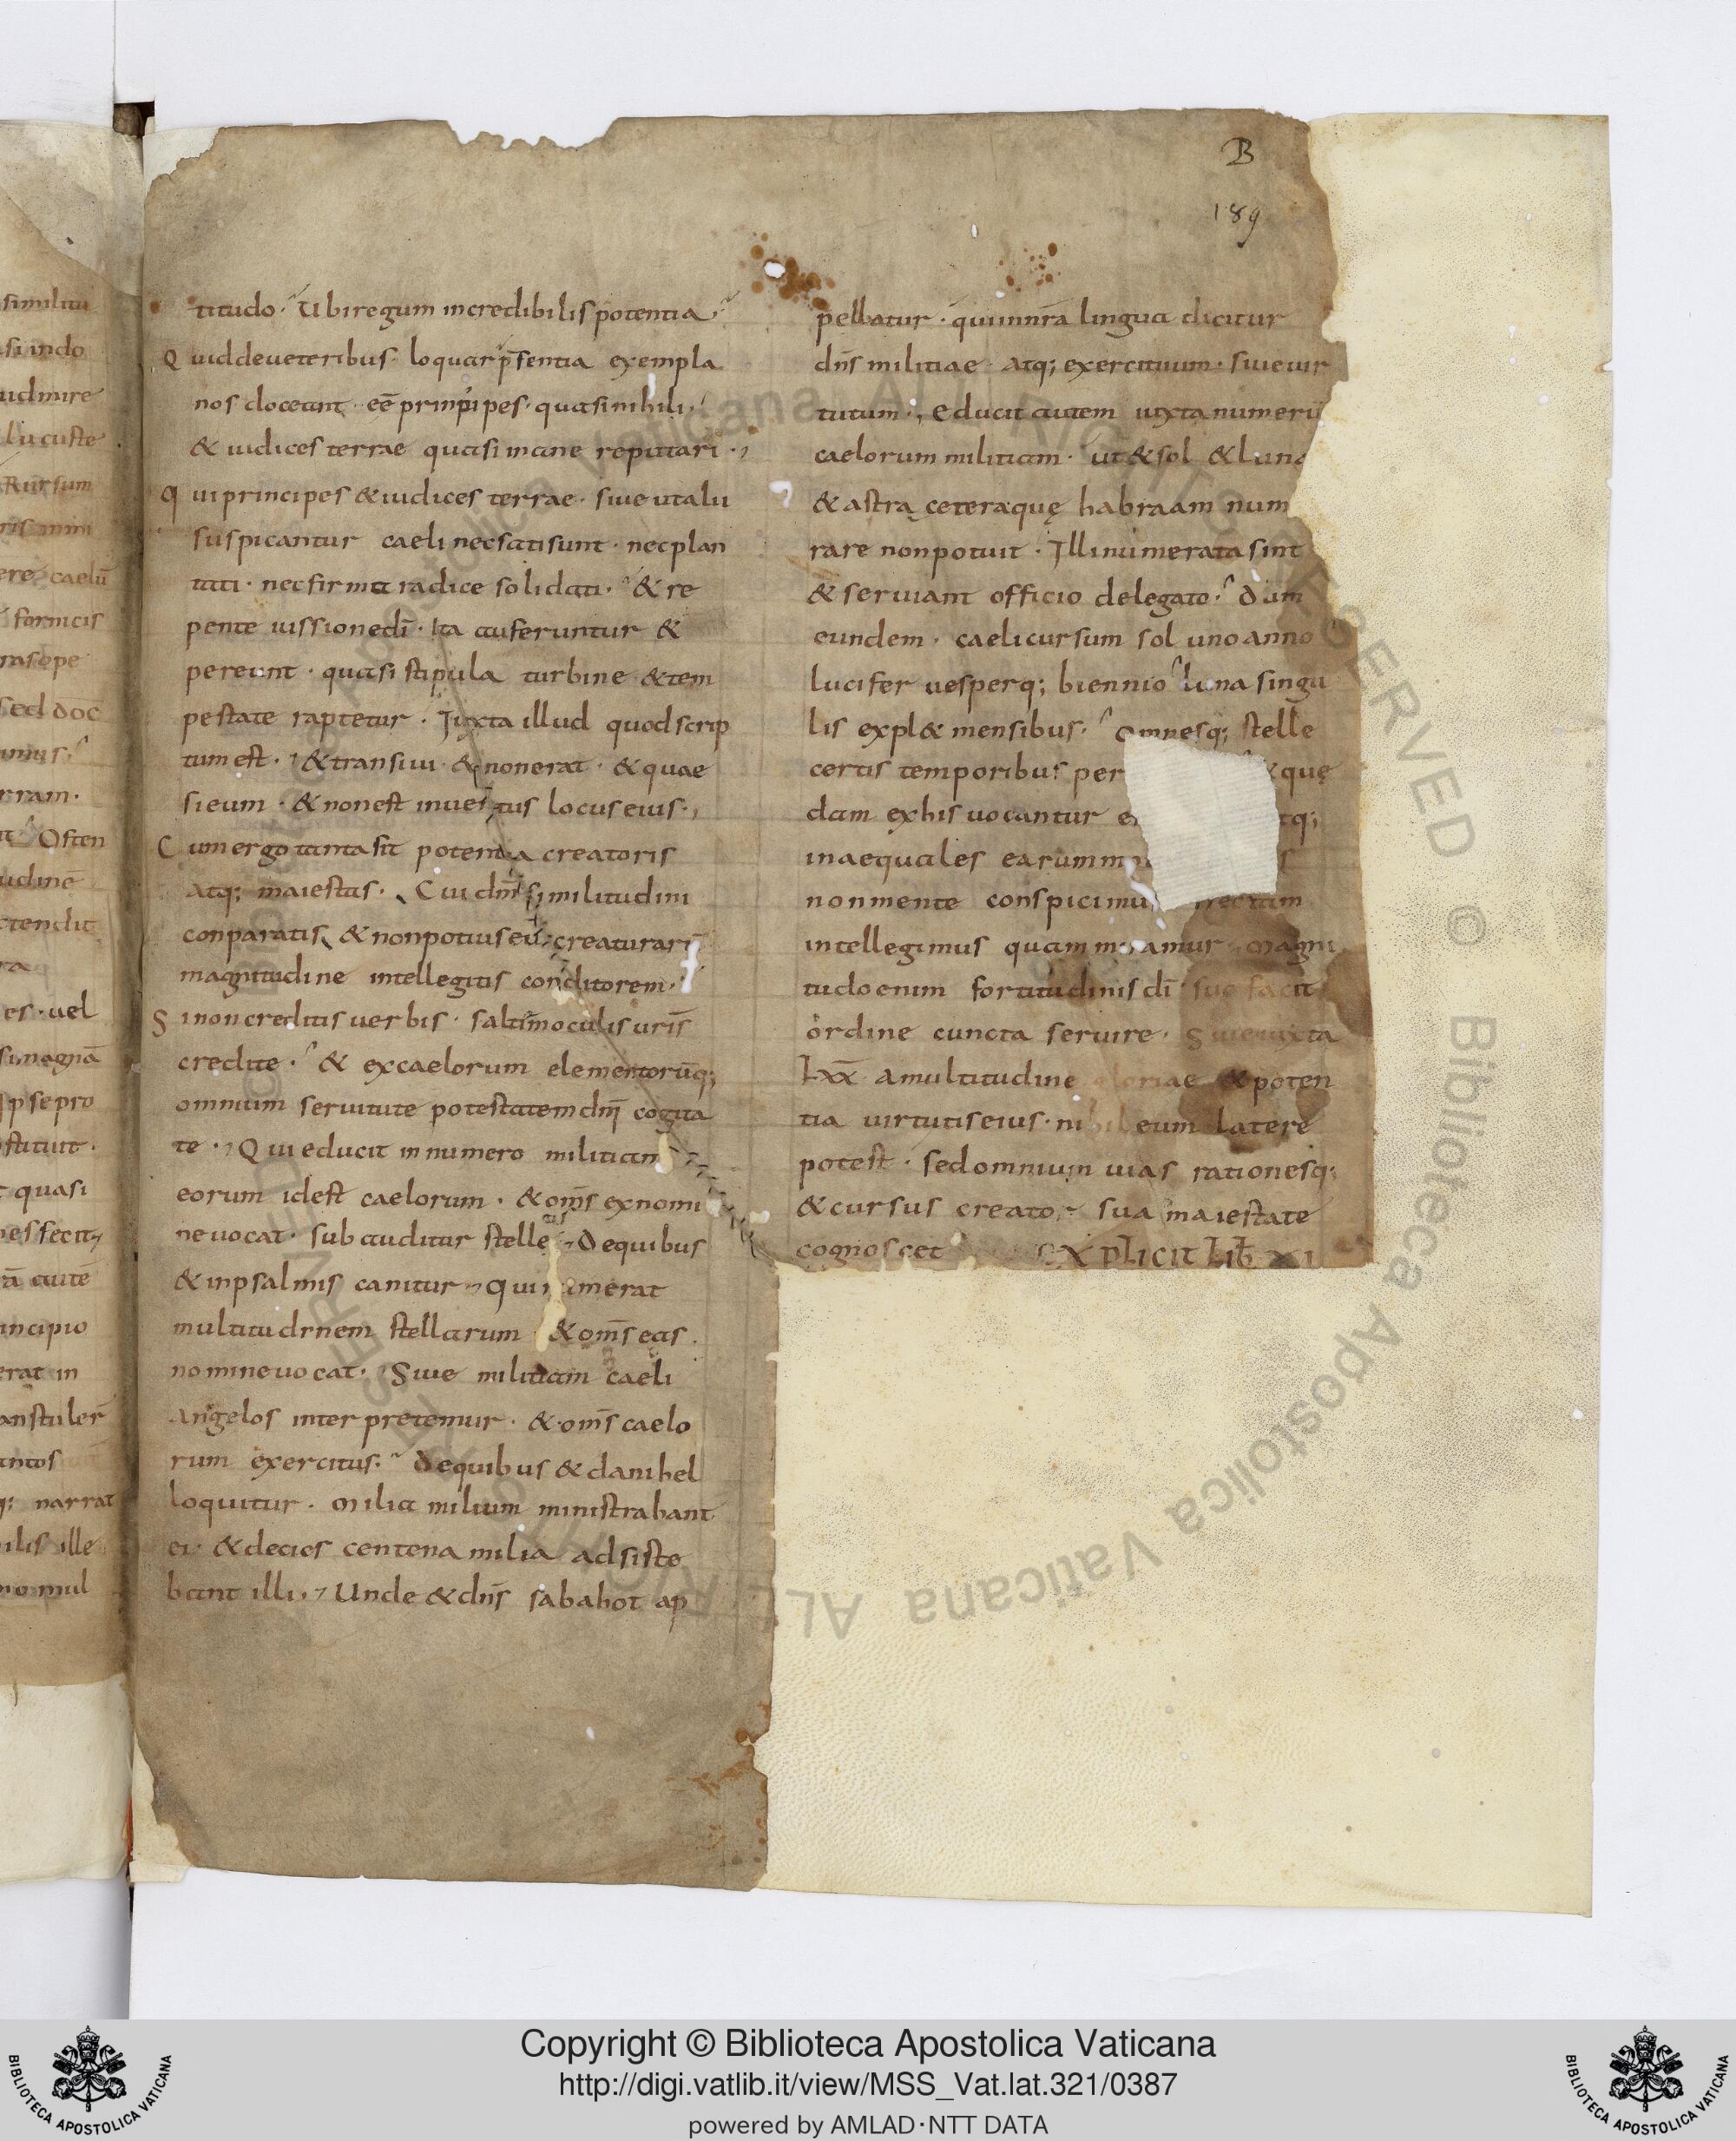 B
189
titudo· Ubiregum incredibilis potentia·
Quiddeueteribus· loquar p̄sentia exempla
nos doceant· eē principes· quasinihili·
& iudices terrae quasi inane reputari·
Qui principes & iudices terrae· siue utalii
suspicantur caeli necsatisunt· necplan
tati· nec firma radice solidati· & re
pente iussionedī· Ita auferuntur &
pereunt· quasi stipula turbine & tem
pestate raptetur· Iuxta illud quod scrip
tum est· & transiui & nonerat· & quae
sieum· & nonest inuentus locus eius·
Cum ergo tanta sit potentia creatoris
atq; maiestas· Cui dnm̄ similitudini
conparatis & nonpotius eū creaturarū
magnitudine intellegitis conditorem·
Si non creditis uerbis· saltim oculis uris̄
credite· & excaelorum elementorūq;
omnium seruitute potestatem dnī cogita
te· Qui educit in numero militiam
eorum idest caelorum· & oms̄ exnomi
ne uocat· sub auditur stellas Dequibus
& inpsalmis canitur Qui numerat
multitudinem stellarum & oms̄ eas
nomine uocat· Siue militiam caeli
angelos interpretemur· & oms̄ caelo
rum exercitus· Dequibus & danihel
loquitur· milia milium ministrabant
ei· & decies centena milia adsiste
bant illi· Unde & dns̄ sabahot ap
pellatur· qui innrā lingua dicitur
dns̄ militiae atq; exercituum· siue uir
tutum· educit autem iuxta numerū
caelorum militiam· ut & sol & luna
& astra ceteraquę habraam num
rare nonpotuit· Illi numerata sint
& seruiant officio delegato· dum
eundem· caeli cursum sol uno anno
lucifer uesperq; biennio luna singu
lis expl& mensibus· Omnesq; stelle
certis temporibus per &quę
dam exhis uocantur tq;
inaequales earum
nonmente conspicimus
intellegimus quam miramur magni
tudo enim fortitudinis dī suo facit
ordine cuncta seruire· Siue iuxta
Lxx̄ a multitudine gloriae & poten
tia uirtutis eius· nihil eum latere
potest· sed omnium uias rationesq;
& cursus creator sua maiestate
cognoscet EXPLICIT LIB̄ XI
Copyright © Biblioteca Apostolica Vaticana
http://digi.vatlib.it/view/MSS_Vat.lat.321/0387
powered by AMLAD·NTT DATA
BIBLIOTECA APOSTOLICA VATICANA
BIBLIOTECA APOSTOLICA VATICANA